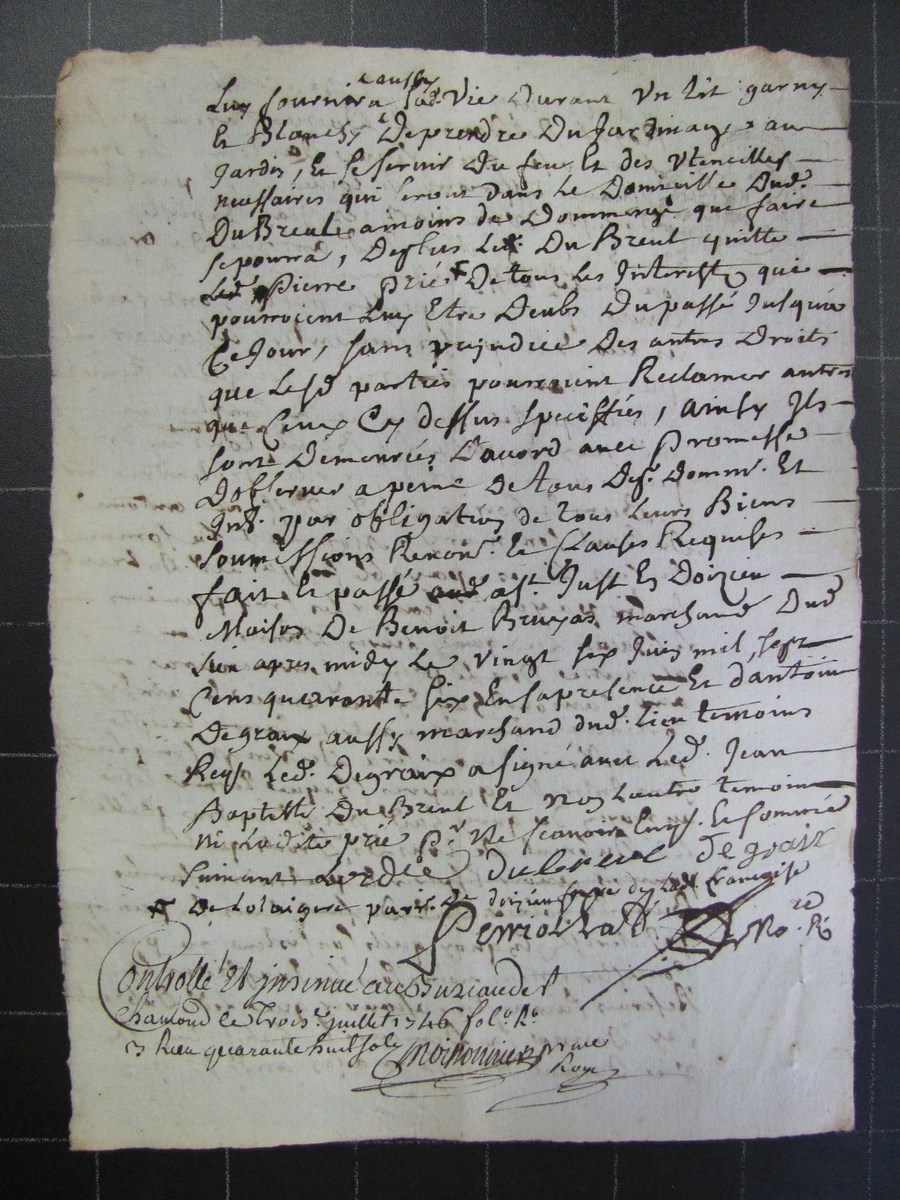 aussy
Luy fournira sad. Vie Durant Un Lit garny
et Blanchy, De prendre Du Jardinage au
Jardin, Et se servir Du feu Et des Utencilles
necessaires qui seront Dans Le Domicille Dud.
Du Breul a moins de Dommage que faire
se pourra, De plus Led. Du Breul quitte
Led. Pierre Prié De tous Les Interests que
pourroient Luy Etre Deubs Du passé Jusqu'a
Ce Jour, sans prejudice Des autres Droits
que Lesd. parties pourroient Reclamer autres
que Ceux Cy dessus speciffiés, ainsy Ils
sont Demeurées D'acord avec Promesse
D'observer a peine De tous Des. Domm. Et
Int. par obligation de tous Leurs Biens
soumissions Renon. Et Clauses Requises
fait Et passé a St. Just En Doizieu
Maison De Benoit Bruyas marchand Dud.
lieu apres midy Le vingt six Juin mil sept
Cens quarente six En sa presence Et d'antoine
Degraix aussy marchand dud. lieu temoins
Requis Led. Degraix a signé avec Led. Jean
Baptiste Du Breul Et non Lautre temoin
ni Ladite prié p. Ne scavoir Enquis. Et sommée
suivant Lordce Dubreul Degraix
De Lolaigere paroi. De doizieu
No. Re
Controllé Et insinué au Bureau de St
Chamond le Trois. juillet 1746 fol. Ro.
3 Reçu quarante huit sols